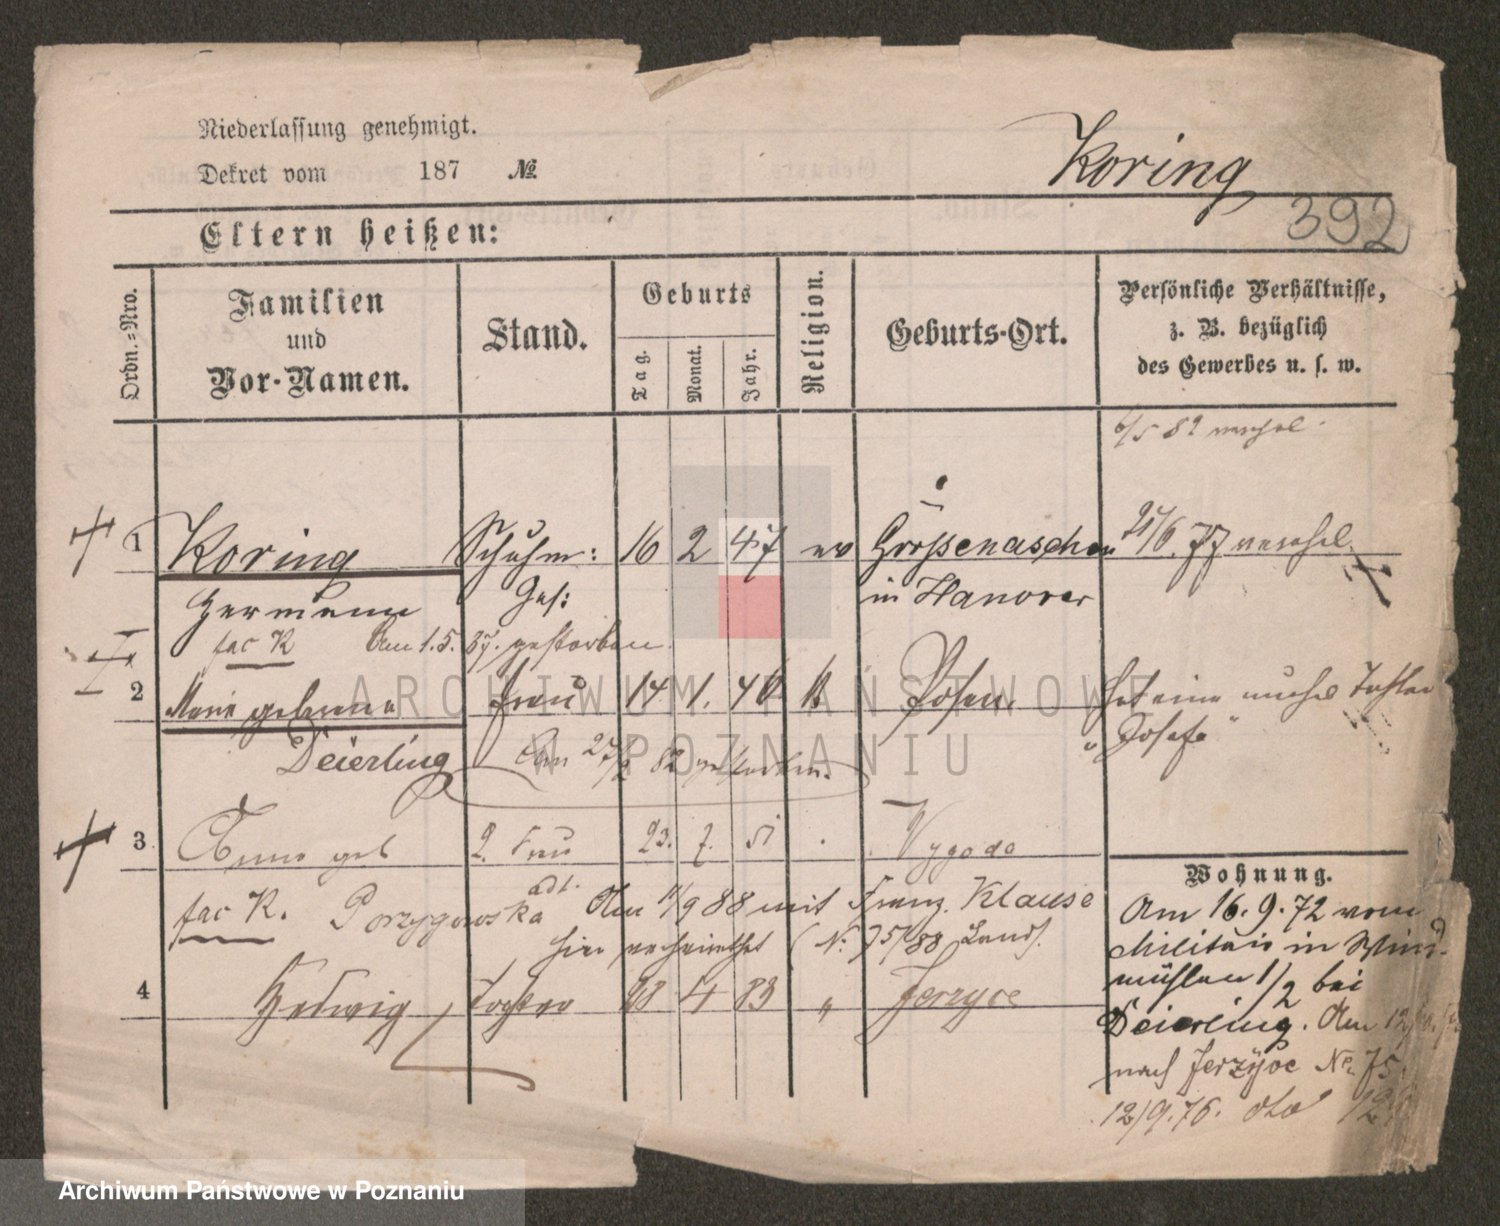 Niederlassung genehmigt.
Dekret vom 187 №
Koring
392
Eltern heißen:
Ordn.-Nro.
Familien und Vor-Namen.
Stand.
Geburts
Tag. Monat. Jahr.
Religion.
Geburts-Ort.
Persönliche Verhältnisse,
z. B. bezüglich
des Gewerbes u. s. w.
6/5 82
1 Koring Schuhm: 16 2 47 ev Grossenaschen 21/6. 77
Hermann Ges: in Hanover
fac K Am 1.5. 87. gestorben.
2 Marie geborene Frau 14 1. 46 K Posen. Hat eine
Deierling Am 82 gestorben. "Josefa"
3 Anna geb 2. Frau 23. 7. 51 Wygoda
fac K. Porzygowska Am 11/9 88 mit Franz Klause
hier verheirathet (Nr. 75/88
4 Hedwig Tochter 28 4 83 " Jerzyce
Wohnung.
Am 16.9.72 vom
Militair in Wind-
mühlen 1/2 bei
Deierling. Am
nach Jerzyce Nr. 75.
12/9.76.
ARCHIWUM PAŃSTWOWE
W POZNANIU
Archiwum Państwowe w Poznaniu